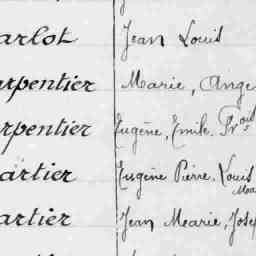 arlot Jean Louis
arpentier Marie, Ange
arpentier Eugène, Emile, Frois
artier Eugène Pierre, Louis
Marie
artier Jean Marie, Jose